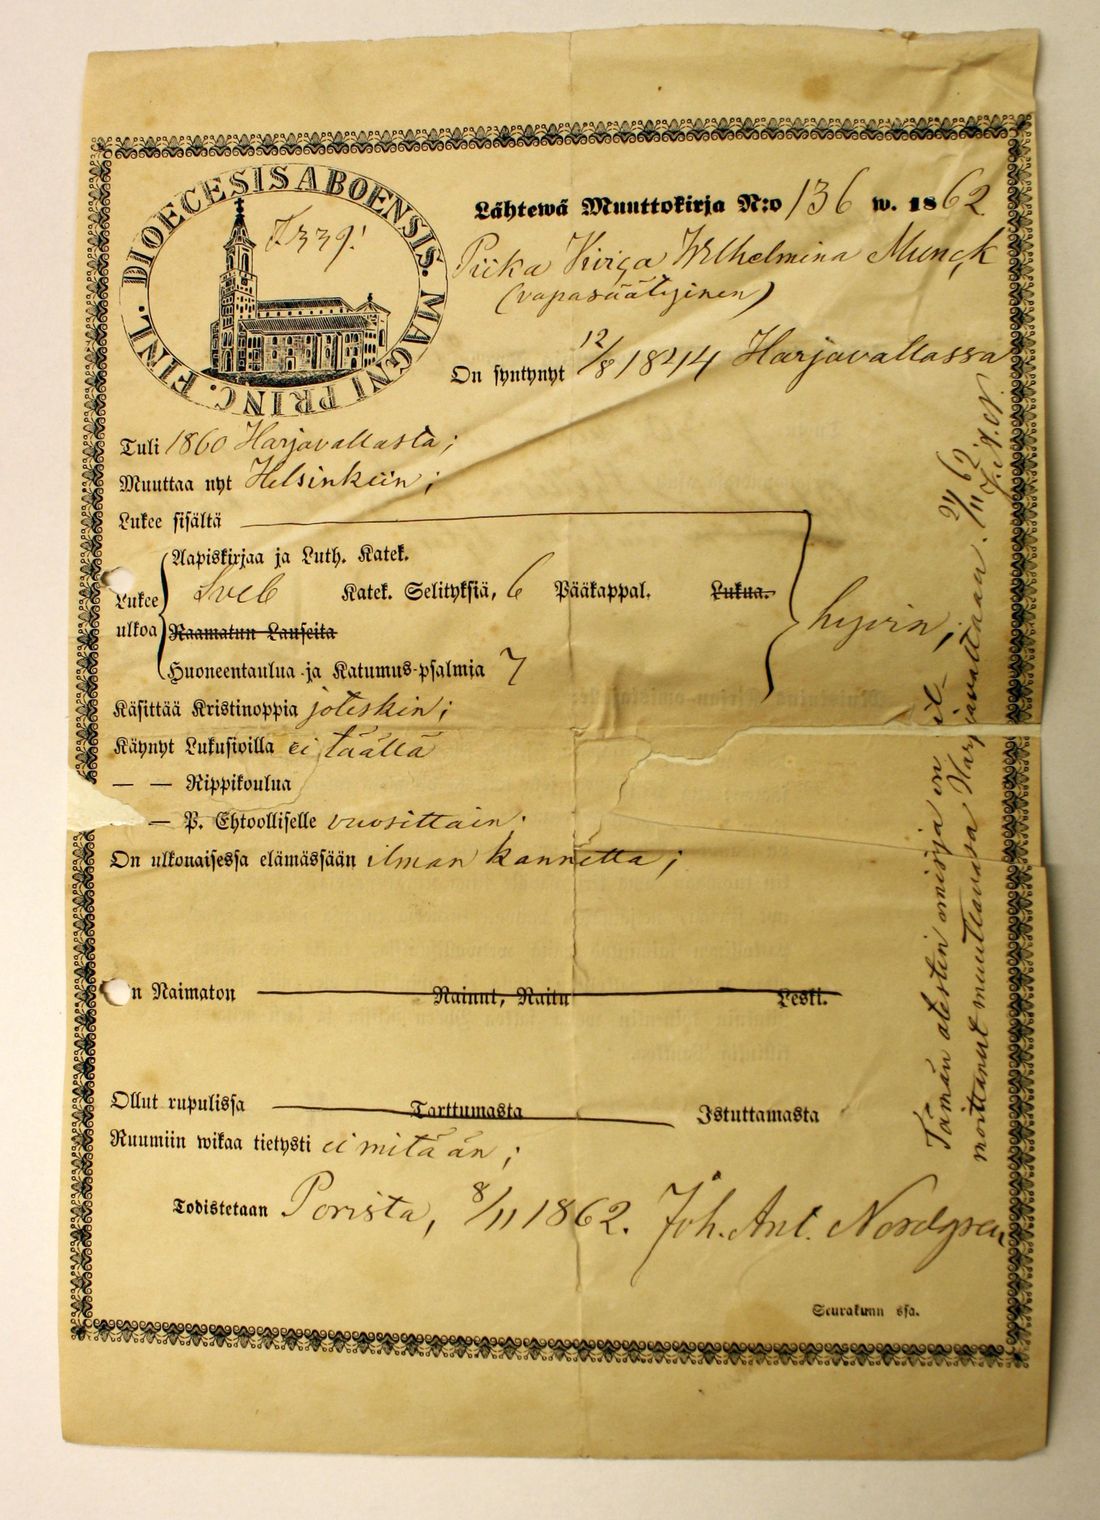 DIOECESIS ABOENSIS. MAGNI PRINC. FINL.
Lähtewä Muuttokirja N:o 136 w. 1862
Piika Wilhelmina Munck
(vapasäätyinen)
On syntynyt 12/8 1844 Harjavallassa
Tuli 1860 Harjavallasta;
Muuttaa nyt Helsinkiin;
Lukee sisältä
Aapiskirjaa ja Luth. Katek.
Lukee Sveb Katek. Selityksiä, 6 Pääkappal. Lukua. hyvin;
ulkoa Raamatun Lauseita
Huoneentaulua ja Katumus-psalmia 7
Käsittää Kristinoppia joteskin;
Käynyt Lukusioilla ei täällä
— — Rippikoulua
— P. Ehtoolliselle vuosittain.
On ulkonaisessa elämässään ilman kannetta;
n Naimaton Nainut, Naitu Leski.
Ollut rupulissa Tarttumasta Istuttamasta
Ruumiin wikaa tietysti ei mitään;
Todistetaan Porista, 8/11 1862. Joh. Ant. Nordgren
Seurakunn ssa.
Tämän atestin omistaja on il-
moittanut muuttavansa Harjavaltaan. 24/11 62. J. A. N.